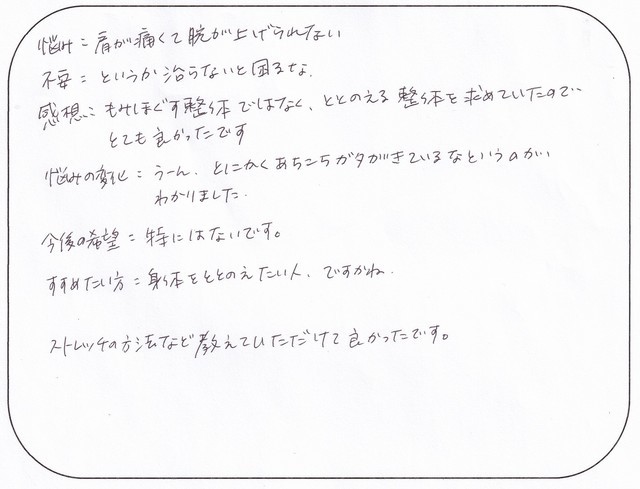 悩み＝肩が痛くて腕が上げられない
不安＝というか治らないと困るな.
感想：もみほぐす整体ではなく、ととのえる整体を求めていたので
とても良かったです
悩みの変化＝うーん、とにかくあちこちガタがきているなというのがい
わかりました.
今後の希望＝特にはないです。
すすめたい方＝身体をととのえたい人、ですかね.
ストレッチの方法など教えていただけて良かったです。